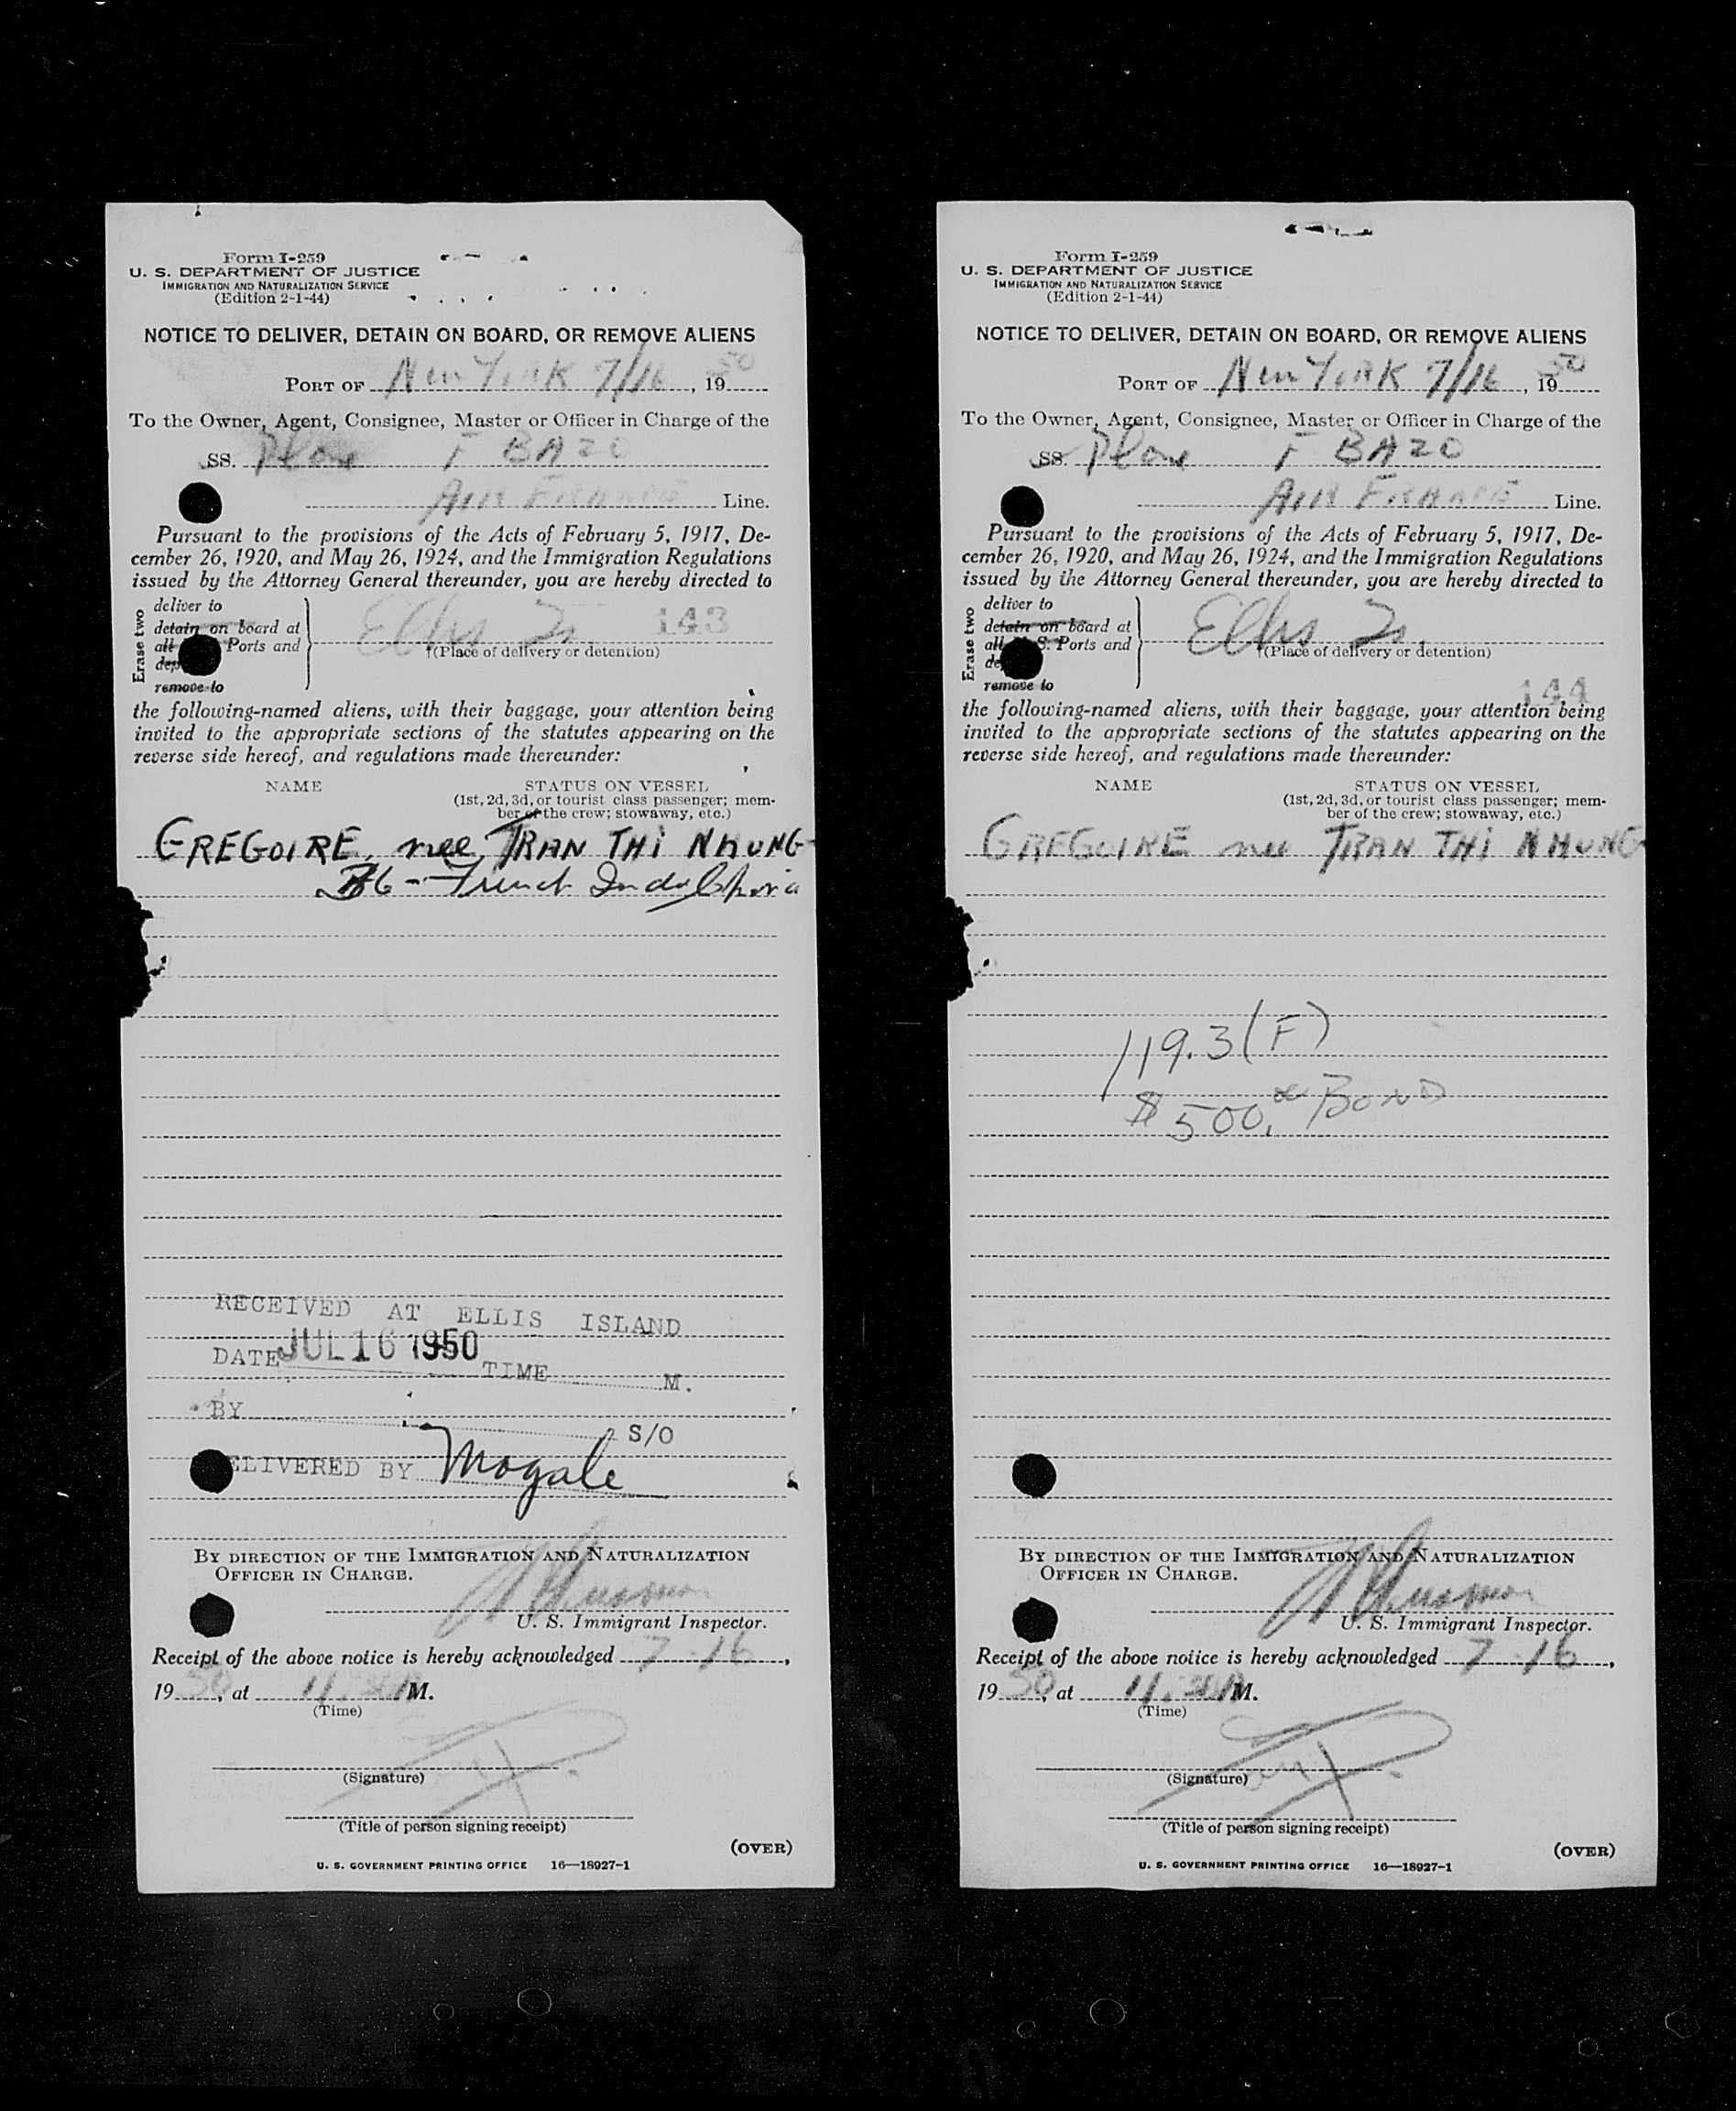 Form I-259
U. S. DEPARTMENT OF JUSTICE
IMMIGRATION AND NATURALIZATION SERVICE
(Edition 2-1-44)
NOTICE TO DELIVER, DETAIN ON BOARD, OR REMOVE ALIENS
PORT OF New York 7/16, 19 50
To the Owner, Agent, Consignee, Master or Officer in Charge of the
SS. Plane F BAZO
AIR FRANCE Line.
Pursuant to the provisions of the Acts of February 5, 1917, De-
cember 26, 1920, and May 26, 1924, and the Immigration Regulations
issued by the Attorney General thereunder, you are hereby directed to
Erase two
deliver to
detain on board at
all Ports and
remove to
Ellis Is. 143
†(Place of delivery or detention)
the following-named aliens, with their baggage, your attention being
invited to the appropriate sections of the statutes appearing on the
reverse side hereof, and regulations made thereunder:
NAME STATUS ON VESSEL
(1st, 2d, 3d, or tourist class passenger; mem-
ber of the crew; stowaway, etc.)
GREGOIRE, nee TRAN THI NHUNG
36 - French Indo China
RECEIVED AT ELLIS ISLAND
DATE JUL 16 1950 TIME M.
BY S/O
ELIVERED BY Mogale
BY DIRECTION OF THE IMMIGRATION AND NATURALIZATION
OFFICER IN CHARGE.
U. S. Immigrant Inspector.
Receipt of the above notice is hereby acknowledged 7-16,
19 50, at 11.30 A M.
(Time)
(Signature)
(Title of person signing receipt)
(OVER)
U. S. GOVERNMENT PRINTING OFFICE 16—18927-1
Form I-259
U. S. DEPARTMENT OF JUSTICE
IMMIGRATION AND NATURALIZATION SERVICE
(Edition 2-1-44)
NOTICE TO DELIVER, DETAIN ON BOARD, OR REMOVE ALIENS
PORT OF New York 7/16, 19 50
To the Owner, Agent, Consignee, Master or Officer in Charge of the
SS. Plane F BAZO
AIR FRANCE Line.
Pursuant to the provisions of the Acts of February 5, 1917, De-
cember 26, 1920, and May 26, 1924, and the Immigration Regulations
issued by the Attorney General thereunder, you are hereby directed to
Erase two
deliver to
detain on board at
all S. Ports and
remove to
Ellis Is.
†(Place of delivery or detention)
144
the following-named aliens, with their baggage, your attention being
invited to the appropriate sections of the statutes appearing on the
reverse side hereof, and regulations made thereunder:
NAME STATUS ON VESSEL
(1st, 2d, 3d, or tourist class passenger; mem-
ber of the crew; stowaway, etc.)
GREGOIRE nee TRAN THI NHUNG
119.3 (F)
$500, Bond
BY DIRECTION OF THE IMMIGRATION AND NATURALIZATION
OFFICER IN CHARGE.
U. S. Immigrant Inspector.
Receipt of the above notice is hereby acknowledged 7-16,
19 50, at 11.30 A M.
(Time)
(Signature)
(Title of person signing receipt)
(OVER)
U. S. GOVERNMENT PRINTING OFFICE 16—18927-1